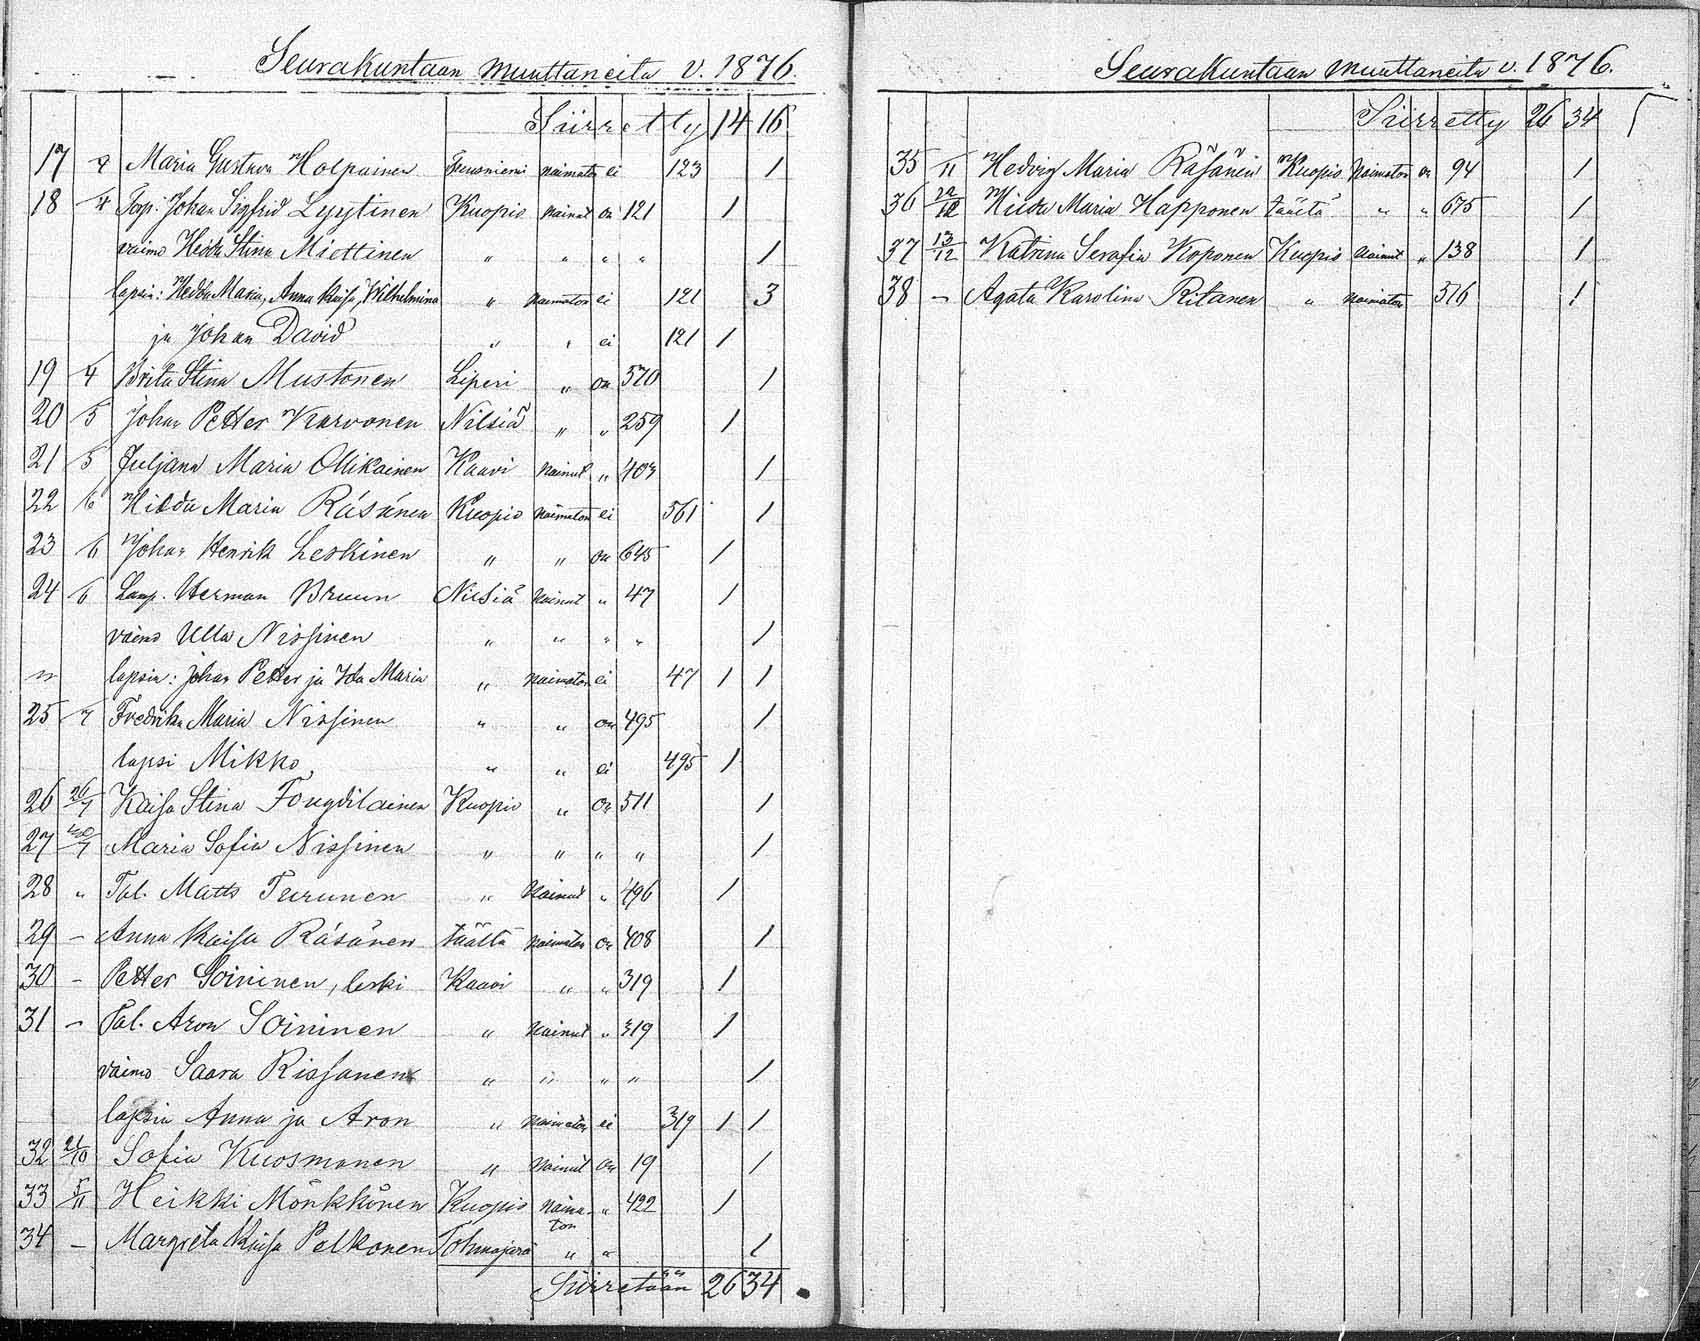 Seurakuntaan muuttaneita v. 1876.
Siirretty 14 16
17 4 Maria Gustava Holpainen Tuusniemi naimaton ei 123 1
18 4 Torp. Johan Sigfrid Lyytinen Kuopio nainut on 121 1
vaimo Hedda Stina Miettinen " " " " 1
lapsia: Hedda Maria, Anna Kaisa, Wilhelmina " naimaton ei 121 3
ja Johan David " " ei 121 1
19 4 Brita Stina Mustonen Liperi " on 570 1
20 5 Johan Petter Karvonen Nilsiä " " 259 1
21 5 Juljana Maria Ollikainen Kaavi nainut " 403 1
22 6 Hilda Maria Räsänen Kuopio naimaton ei 561 1
23 6 Johan Henrik Leskinen " " on 645 1
24 6 Lamp. Herman Bruun Nilsiä nainut " 47 1
vaimo Ulla Nissinen " " " " 1
" lapsia: Johan Petter ja Ida Maria " naimaton ei 47 1 1
25 7 Fredrika Maria Nissinen " " on 495 1
lapsi Mikko " " ei 495 1
26 26/7 Kaisa Stina Kuopio " on 511 1
27 /7 Maria Sofia Nissinen " " " " 1
28 " Tal. Matts Turunen " nainut " 496 1
29 – Anna Kaisa Räsänen täältä naimaton on 408 1
30 – Petter Soininen, leski Kaavi " " 319 1
31 – Tal. Aron Soininen " nainut " 319 1
vaimo Saara Rissanen " " " " 1
lapsia Anna ja Aron " naimaton ei 319 1 1
32 21/10 Sofia Kuosmanen " nainut on 19 1
33 5/11 Heikki Mönkkönen Kuopio naima-ton " 422 1
34 – Margreta Kaisa Pelkonen Tohmajärvi " " 1
Siirretään 26 34
Seurakuntaan muuttaneita v. 1876.
Siirretty 26 34
35 11 Hedvig Maria Räsänen Kuopio naimaton on 94 1
36 22/12 Hilda Maria Happonen täältä " " 675 1
37 13/12 Katrina Serafia Koponen Kuopio nainut " 138 1
38 – Agata Karolina Ritanen " naimaton 516 1